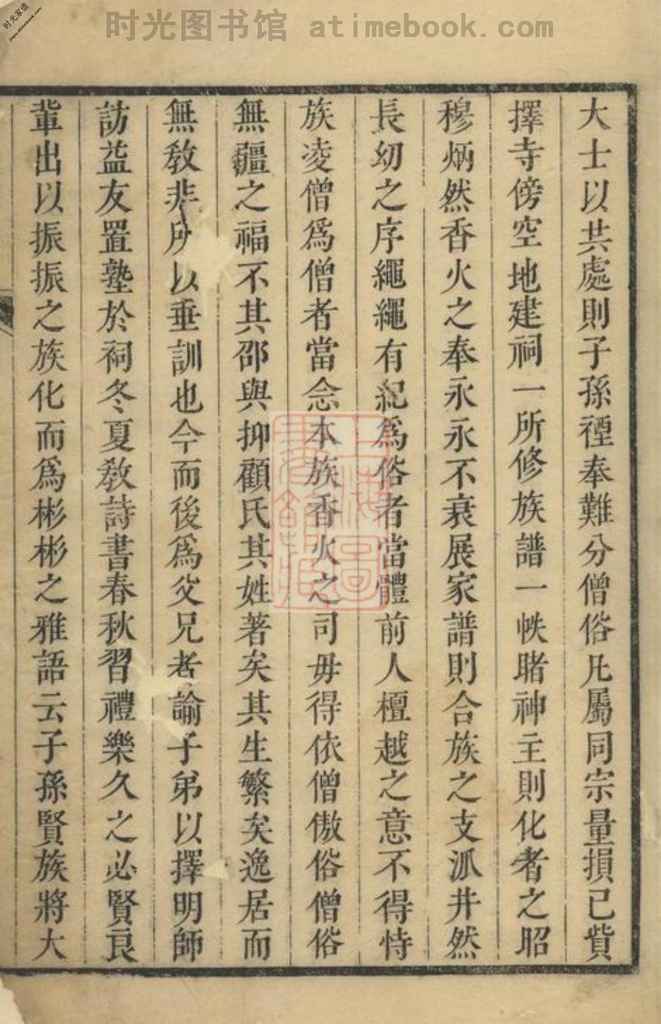 时光图书馆 atimebook.com
时光家谱
www.atimebook.com
大士以共處則子孫禋奉難分僧俗凡屬同宗量損己貲
擇寺傍空地建祠一所修族譜一帙睹神主則化者之昭
穆炳然香火之奉永永不衰展家譜則合族之支派井然
長幼之序繩繩有紀為俗者當體前人檀越之意不得恃
族凌僧為僧者當念本族香火之司毋得依僧傲俗僧俗
無疆之福不其邵與抑顧氏其姓著矣其生繁矣逸居而
無教非所以垂訓也今而後為父兄者諭子弟以擇明師
訪益友置塾於祠冬夏教詩書春秋習禮樂久之必賢良
輩出以振振之族化而為彬彬之雅語云子孫賢族將大